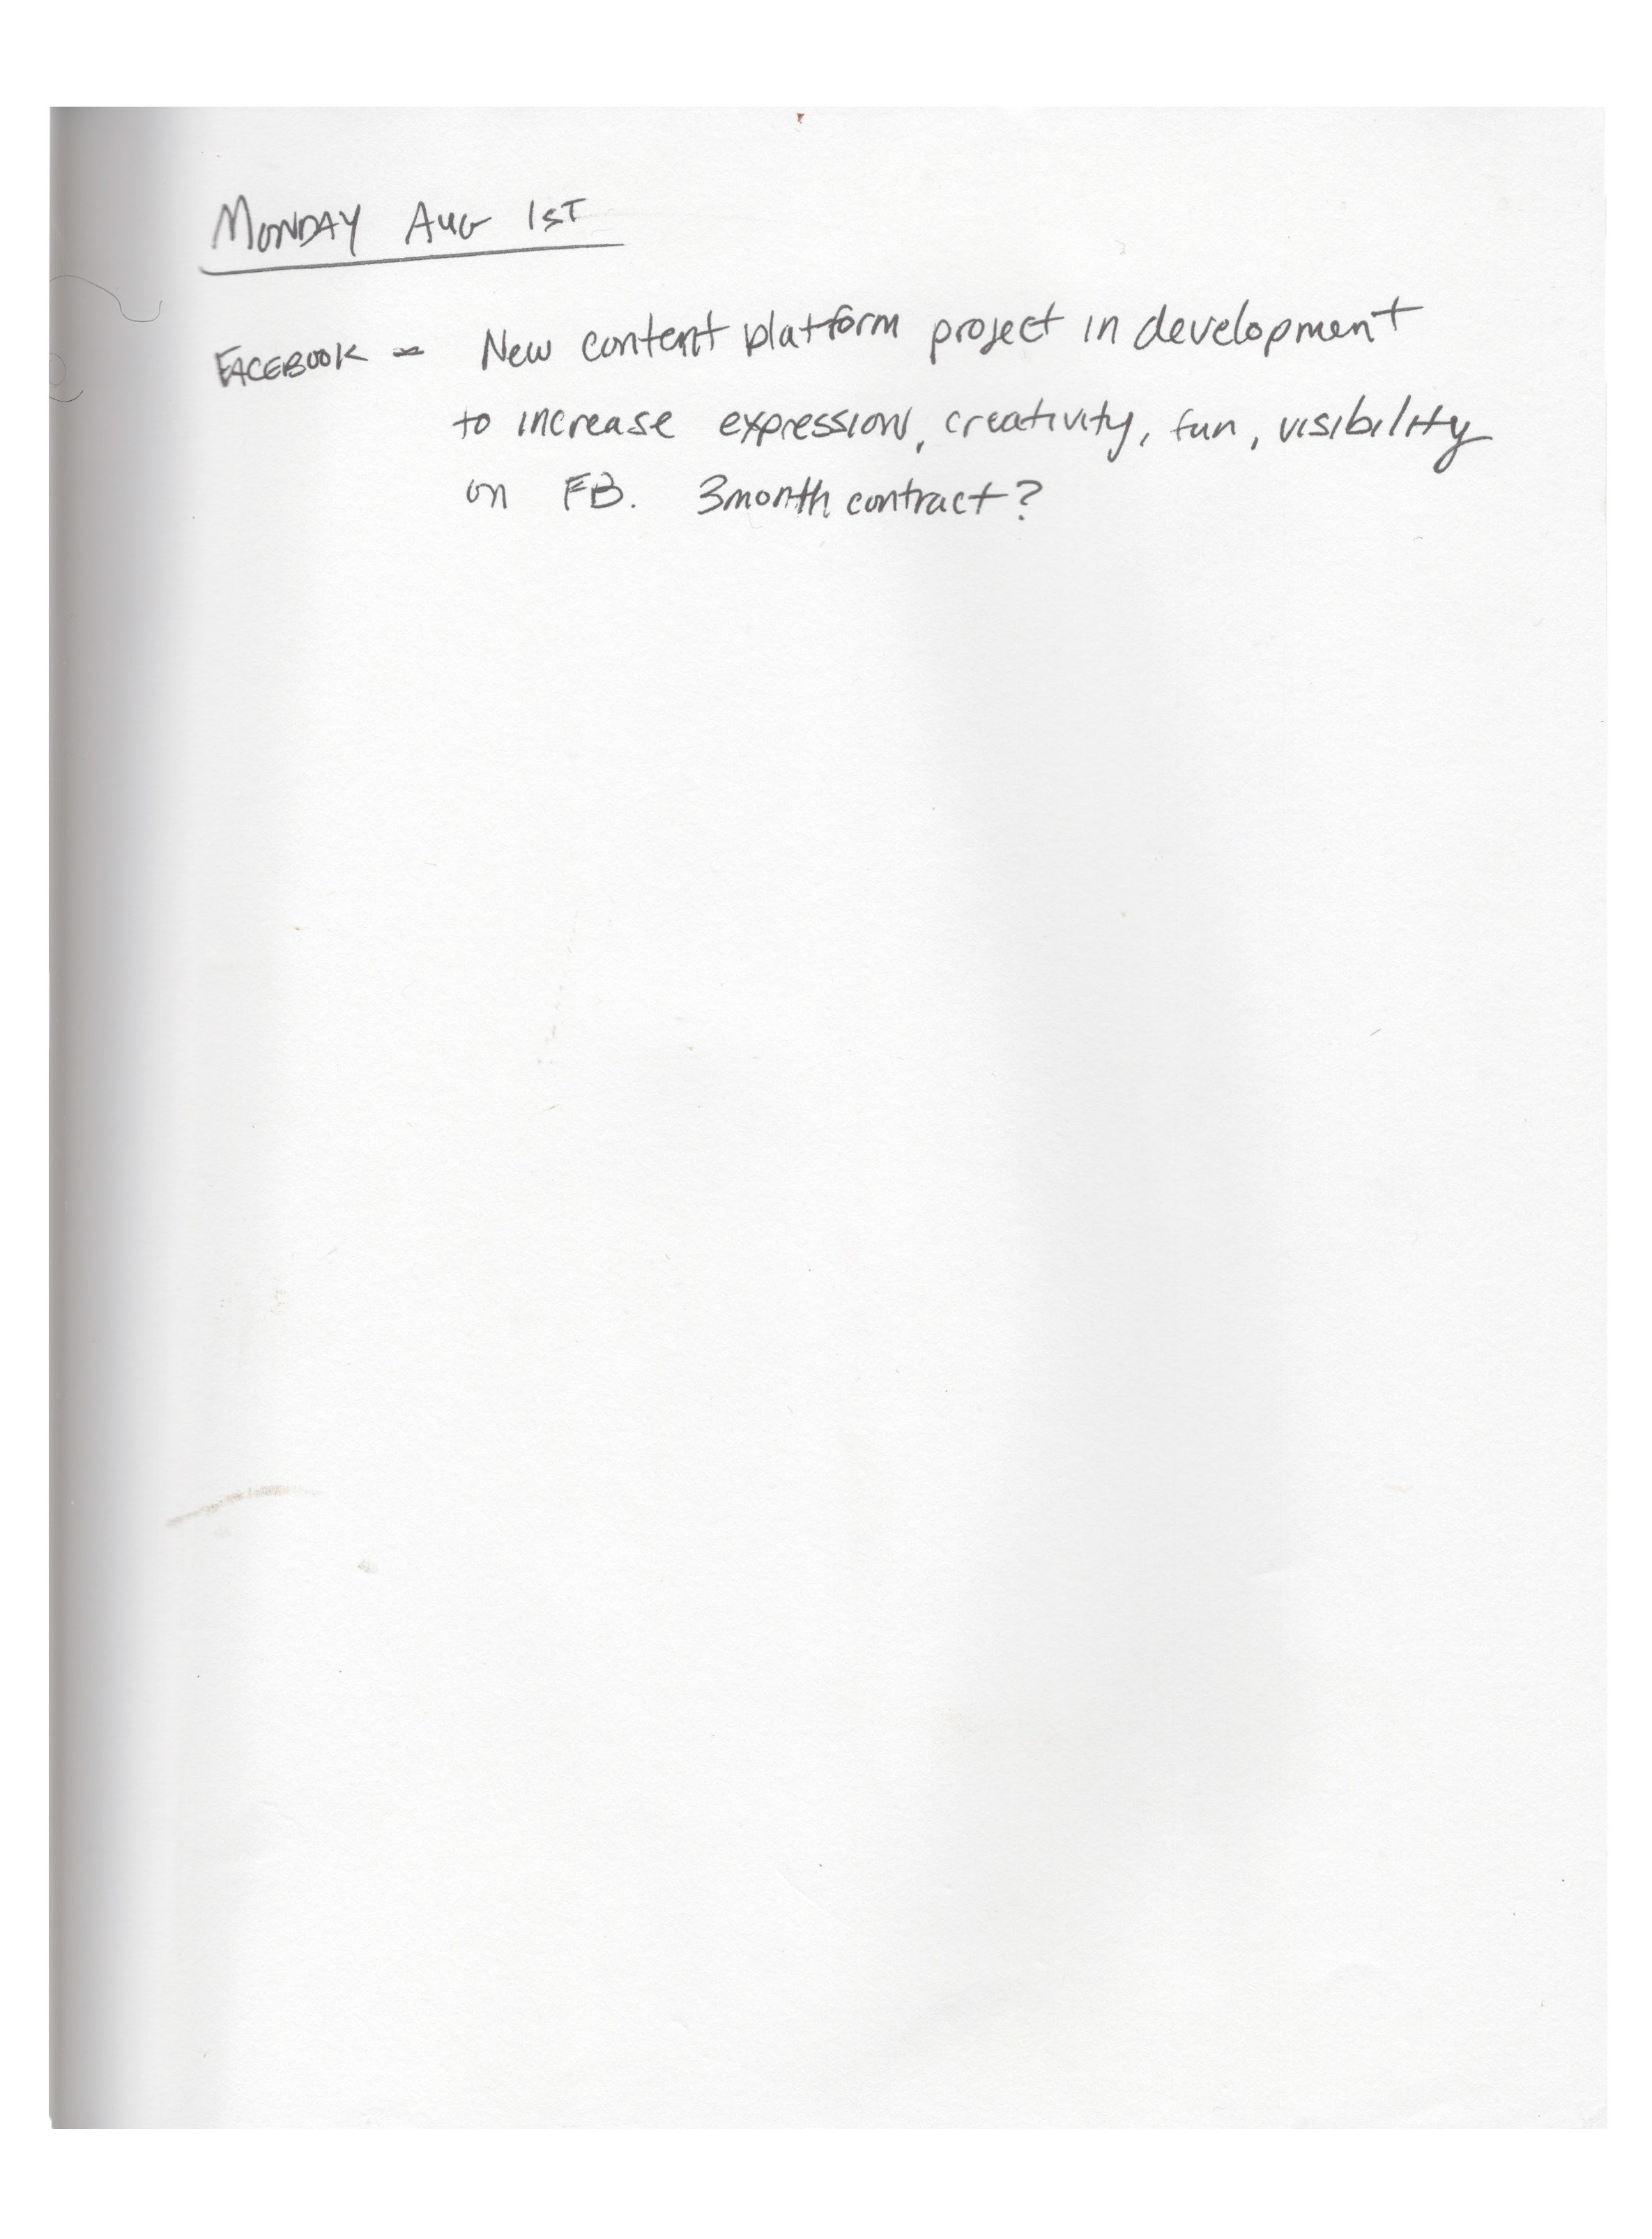 MONDAY AUG 1ST
FACEBOOK - New content platform project in development
to increase expression, creativity, fun, visibility
on FB. 3month contract?